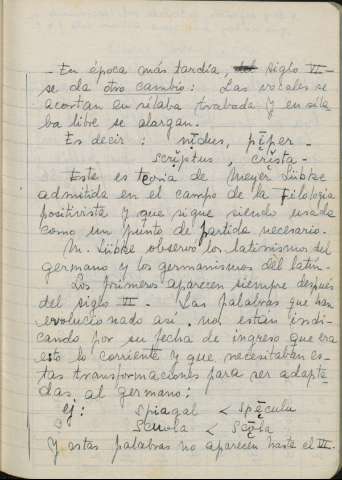 - En época más tardía, siglo VI -
se da otro cambio: Las vocales se
acortan en sílaba trabada y en síla
ba libre se alargan.
Es decir: nīdus, pĭper.
scrīptus, crīsta -
Este es teoria de Meyer Lübke
admitida en el campo de la Filología
positivista y que sigue siendo usada
como un punto de partida necesario.
M. Lübke observó los latinismos del
germano y los germanismos del latín.
Los primeros aparecen siempre después
del siglo III. Las palabras que han
evolucionado así, nos están indi-
cando por su fecha de ingreso que era
esto lo corriente y que necesitaban es-
tas transformaciones para ser adapta
das al germano:
ej: spiagal < spĕculu
scuola < scŏla
Y estas palabras no aparecen hasta el VII.